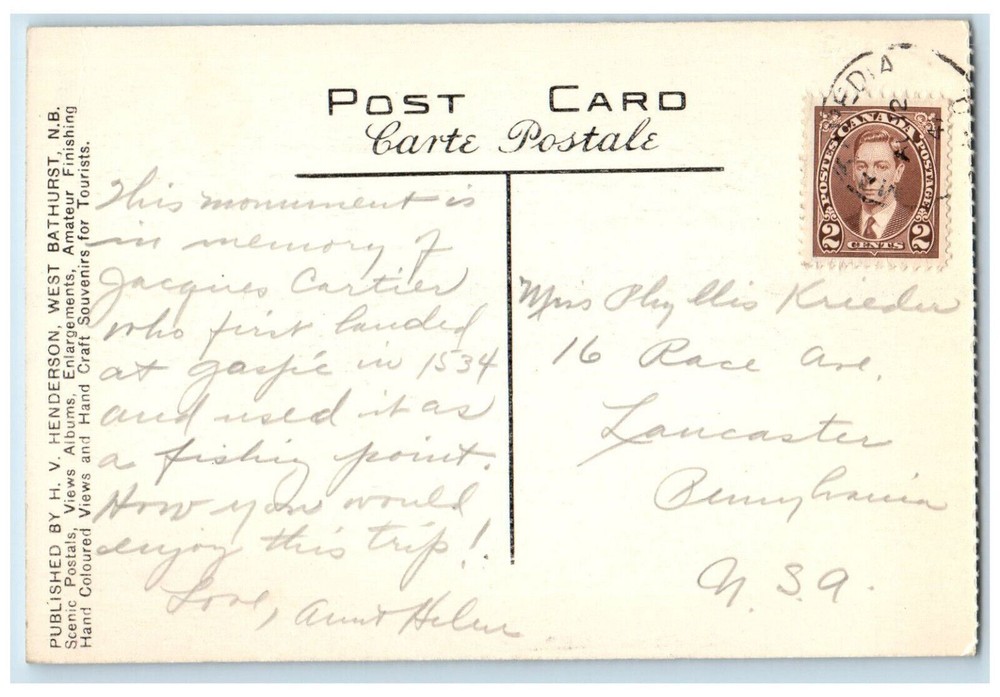 POST CARD
Carte Postale
PUBLISHED BY H. V. HENDERSON, WEST BATHURST, N.B.
Scenic Postals, Views Albums, Enlargements, Amateur Finishing
Hand Coloured Views and Hand Craft Souvenirs for Tourists.
This monument is
in memory of
Jacques Cartier
who first landed
at Gaspé in 1534
and used it as
a fishing point.
How you would
enjoy this trip!
Love, Aunt Helen.
POSTES CANADA POSTAGE
2 CENTS 2
Miss Phyllis Krieder
16 Race Ave.
Lancaster
Pennsylvania
U.S.A.